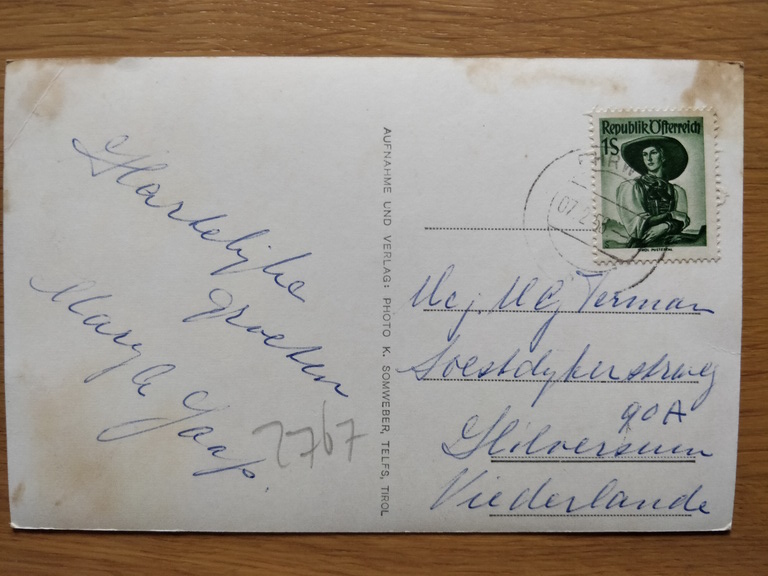 Hartelijke
groeten
Mary & Jaap.
2767
AUFNAHME UND VERLAG: PHOTO K. SOMWEBER, TELFS, TIROL
Republik Österreich
1S
07.2.5
Mej. M Terman
Soestdijkerstrweg
90A
Hilversum
Niederlande